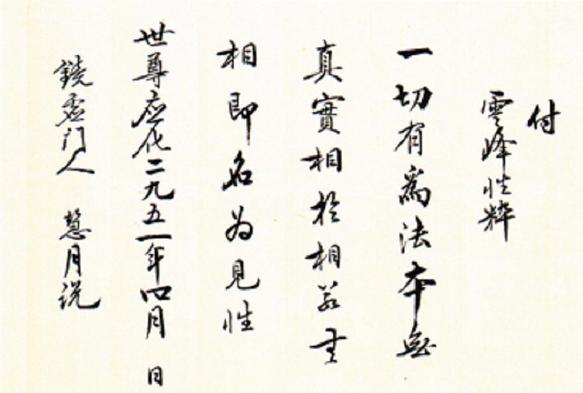 付
雲峰性粹
一切有爲法本無
真實相於相若無
相即名为見性
世尊應化二九五一年四月 日
鏡虛門人 慧月說